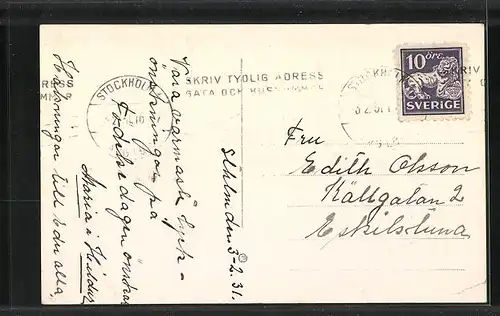 Sthlm den 3-2.31.
Våra varmaste lyck-
önskningar på
Födelsedagen önskar
Maria, Hildur
Hälsningar till Eder alla.
STOCKHOLM
SKRIV TYDLIG ADRESS
GATA OCH HUSNUMMER
STOCKHOLM
3.2.31
SKRIV
10 ÖRE
SVERIGE
Fru
Edith Olsson
Källgatan 2
Eskilstuna